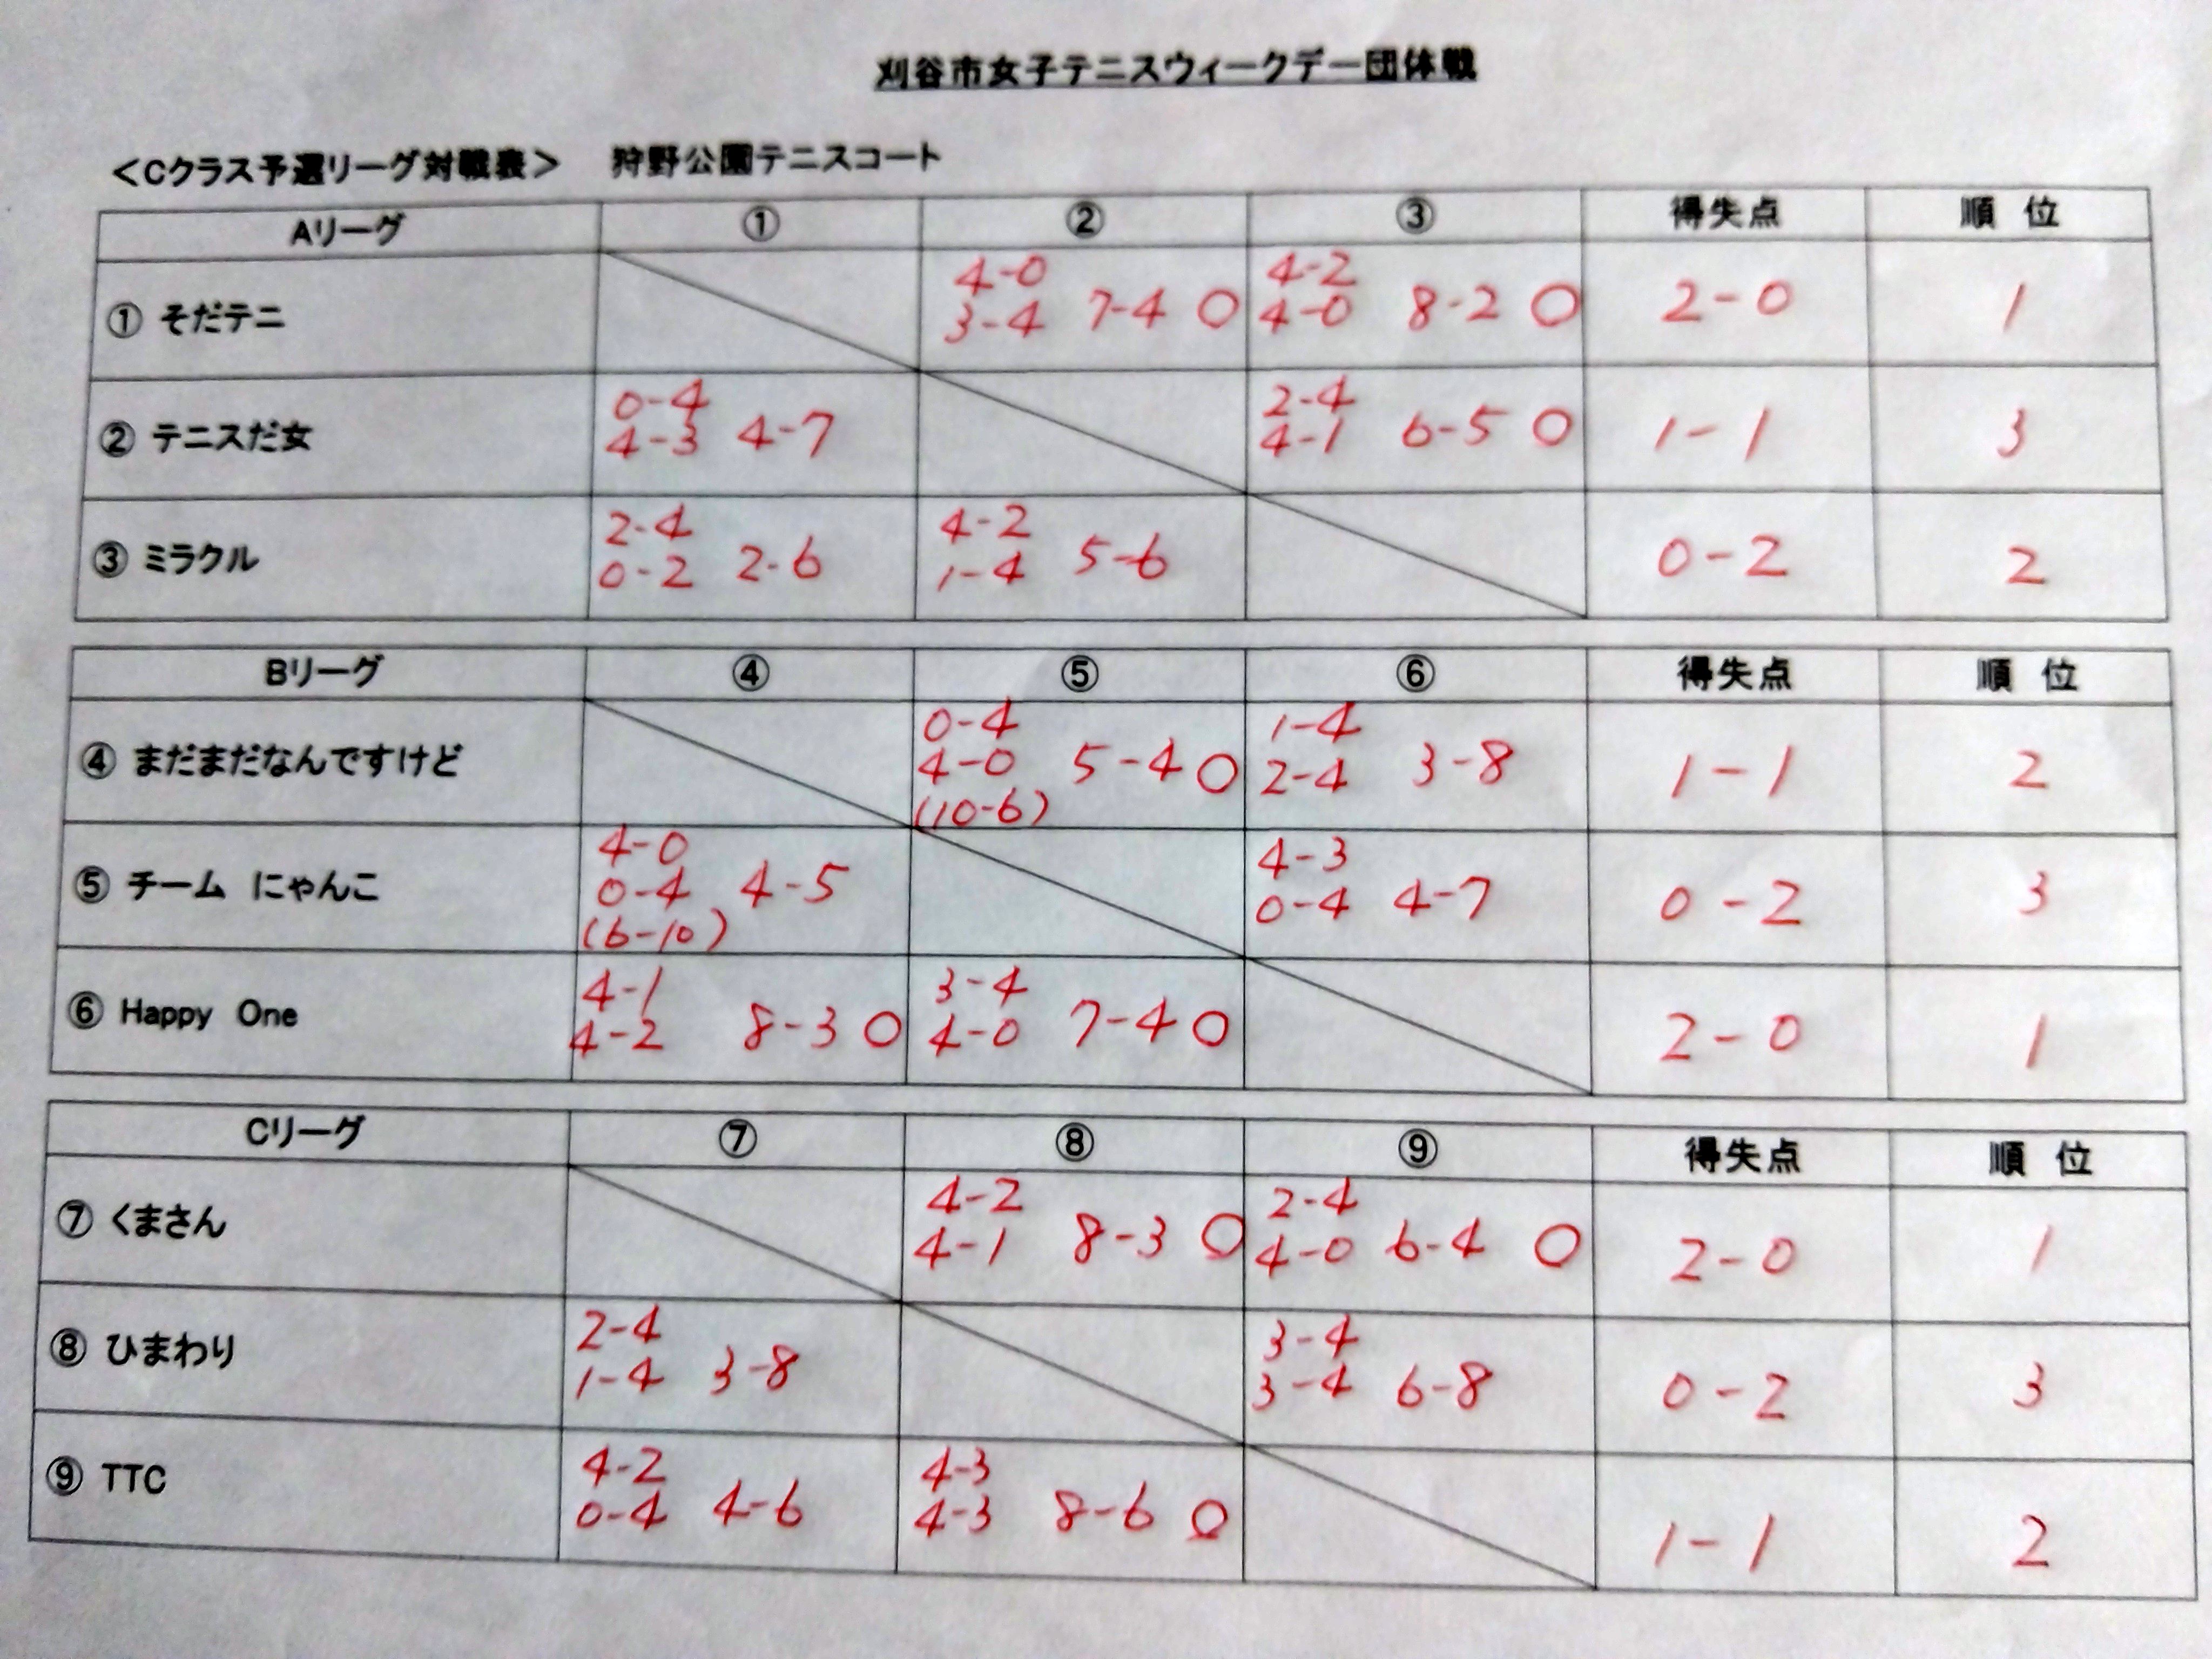 刈谷市女子テニスウィークデー団体戦
＜Cクラス予選リーグ対戦表＞ 狩野公園テニスコート
Aリーグ ① ② ③ 得失点 順 位
① そだテニ 4-0 3-4 7-4 ○ 4-2 4-0 8-2 ○ 2-0 1
② テニスだ女 0-4 4-3 4-7 2-4 4-1 6-5 ○ 1-1 3
③ ミラクル 2-4 0-2 2-6 4-2 1-4 5-6 0-2 2
Bリーグ ④ ⑤ ⑥ 得失点 順 位
④ まだまだなんですけど 0-4 4-0 (10-6) 5-4 ○ 1-4 2-4 3-8 1-1 2
⑤ チーム にゃんこ 4-0 0-4 (6-10) 4-5 4-3 0-4 4-7 0-2 3
⑥ Happy One 4-1 4-2 8-3 ○ 3-4 4-0 7-4 ○ 2-0 1
Cリーグ ⑦ ⑧ ⑨ 得失点 順 位
⑦ くまさん 4-2 4-1 8-3 ○ 2-4 4-0 6-4 ○ 2-0 1
⑧ ひまわり 2-4 1-4 3-8 3-4 3-4 6-8 0-2 3
⑨ TTC 4-2 0-4 4-6 4-3 4-3 8-6 ○ 1-1 2